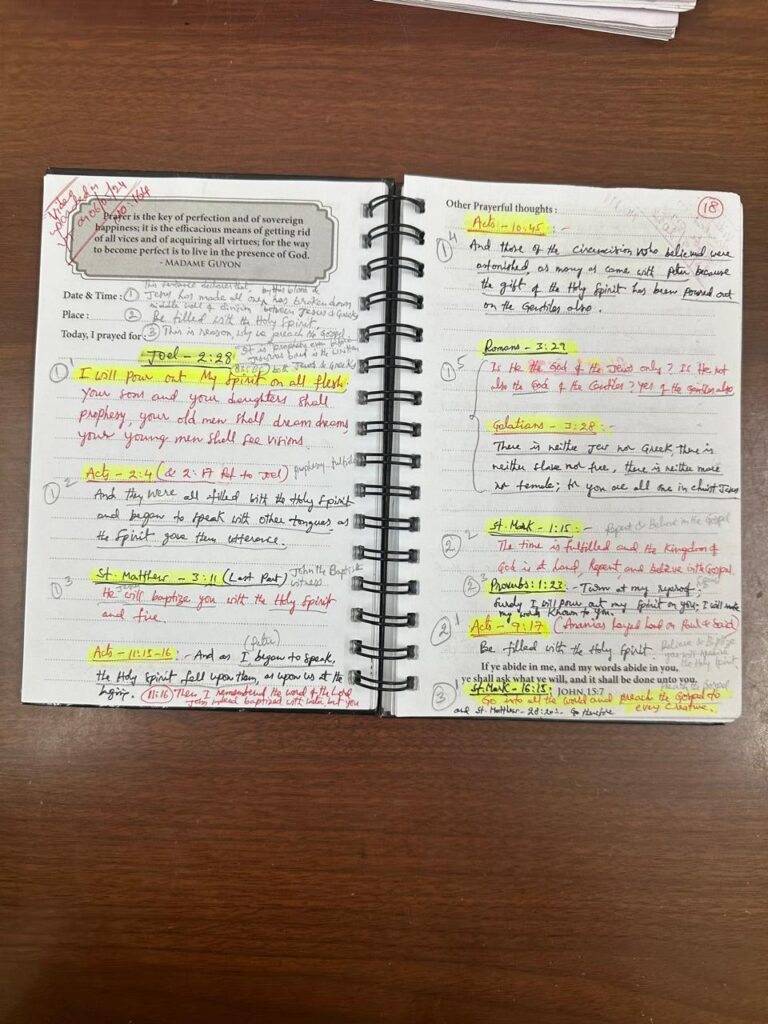 Video
uploaded
on 06/01/24
Prayer is the key of perfection and of sovereign
happiness; it is the efficacious means of getting rid
of all vices and of acquiring all virtues; for the way
to become perfect is to live in the presence of God.
- MADAME GUYON
This sentence declares that by this blood &
Date & Time : ① Jesus has made all one, has broken down
middle wall of division between Jesus & Greeks
Place : ② Be filled with the Holy Spirit.
Today, I prayed for ③ This is reason why we preach the Gospel
Joel - 2:28
both Jews & Greeks
①¹ I will pour out My Spirit on all flesh
your sons and your daughters shall
prophesy, your old men shall dream dreams
your young men shall see visions.
Acts - 2:4 (& 2:17 Ref to Joel) prophesy fulfilled
①² And they were all filled with the Holy Spirit
and began to speak with other tongues as
the Spirit gave them utterance.
St. Matthew - 3:11 (Last Part) John the Baptist
witness
①³ He will baptize you with the Holy Spirit
and fire.
(Peter)
Acts - 11:15-16 :- And as I began to speak,
the Holy Spirit fell upon them, as upon us at the
(11:16) Then I remembered the word of the Lord
John indeed baptized with water, but you
Other Prayerful thoughts :
18
Acts - 10:45 :-
①⁴ And those of the circumcision who believed were
astonished, as many as came with Peter because
the gift of the Holy Spirit has been poured out
on the Gentiles also.
Romans - 3:29
①⁵ Is He the God of the Jews only? Is He not
also the God of the Gentiles? Yes of the Gentiles also
Galatians - 3:28 :-
There is neither Jew nor Greek, there is
neither slave nor free, there is neither male
nor female; for you are all one in Christ Jesus
St. Mark - 1:15 :- Repent & Believe in the Gospel
②² The time is fulfilled and the Kingdom of
God is at hand, Repent, and believe in the Gospel.
②³ Proverbs : 1:23 - Turn at my reproof;
Surely I will pour out my Spirit on you; I will make
my words known to you.
②¹ Acts - 9:17 (Ananias layed hand on Paul & Said)
Be filled with the Holy Spirit. Believe & Baptize
you will receive
the Holy Spirit
If ye abide in me, and my words abide in you,
ye shall ask what ye will, and it shall be done unto you.
JOHN 15:7
③¹ St. Mark - 16:15 :-
Go into all the world and preach the Gospel to
every Creature.
and St. Matthew - 28:20 :- Go therefore